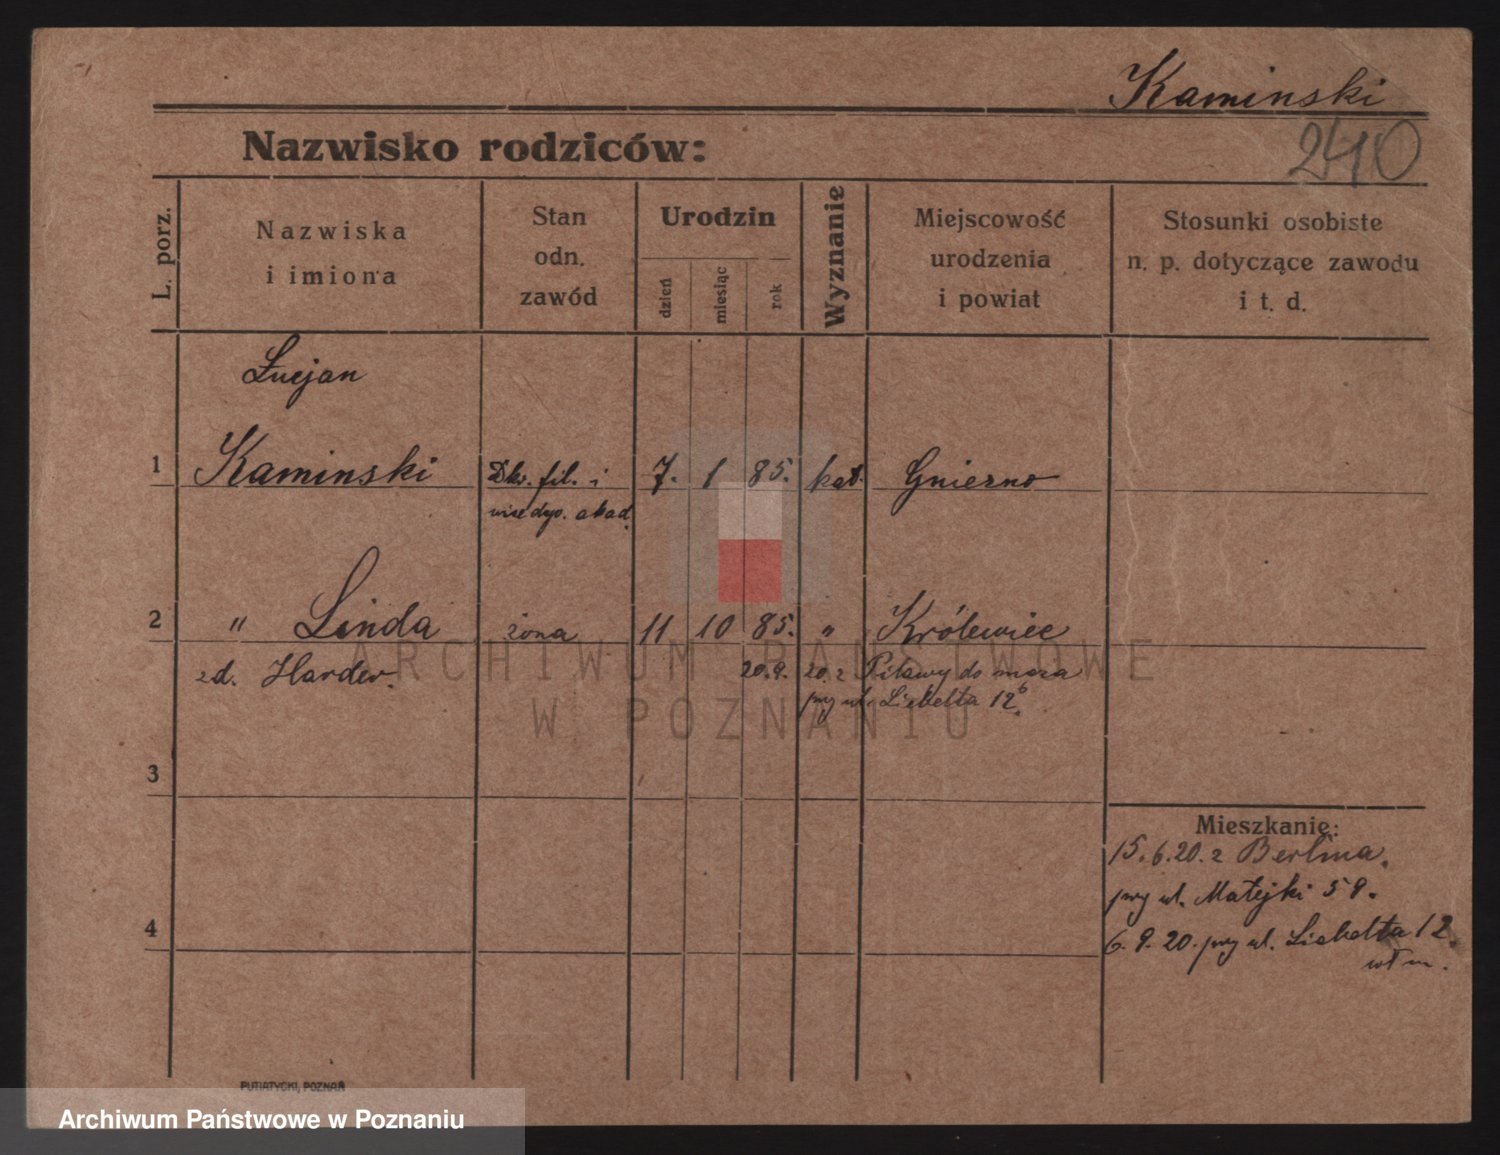 Kaminski
Nazwisko rodziców:
240
L. porz.
Nazwiska
i imiona
Stan
odn.
zawód
Urodzin
dzień
miesiąc
rok
Wyznanie
Miejscowość
urodzenia
i powiat
Stosunki osobiste
n. p. dotyczące zawodu
i t. d.
Łucjan
1 Kaminski Dkr. fil. i 7. 1 85. kat. Gniezno
akad.
2 " Linda żona 11 10 85. " Królewiec
zd. Harder. 20.9. 20. z Piławy do męża
przy ul. Liebelta 12
3
Mieszkanie:
15.6.20. z Berlina.
przy ul. Matejki 59.
4
6.9.20. przy ul. Liebelta 12.
PUTIATYCKI, POZNAŃ
ARCHIWUM PAŃSTWOWE
W POZNANIU
Archiwum Państwowe w Poznaniu